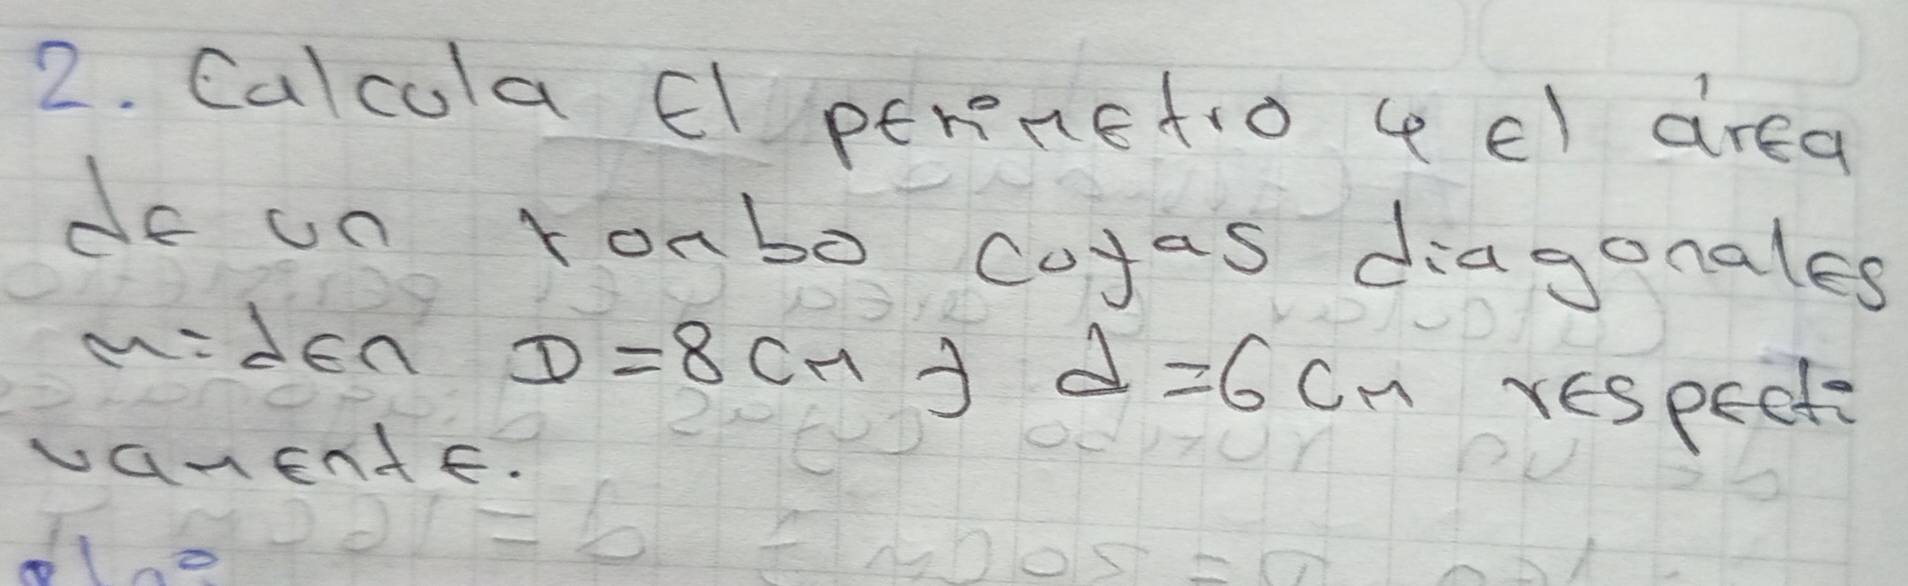 2. Calcula El perímetro y el área
de un rombo cuyas diagonales
miden D=8cm y d=6cm respecti
vamente.